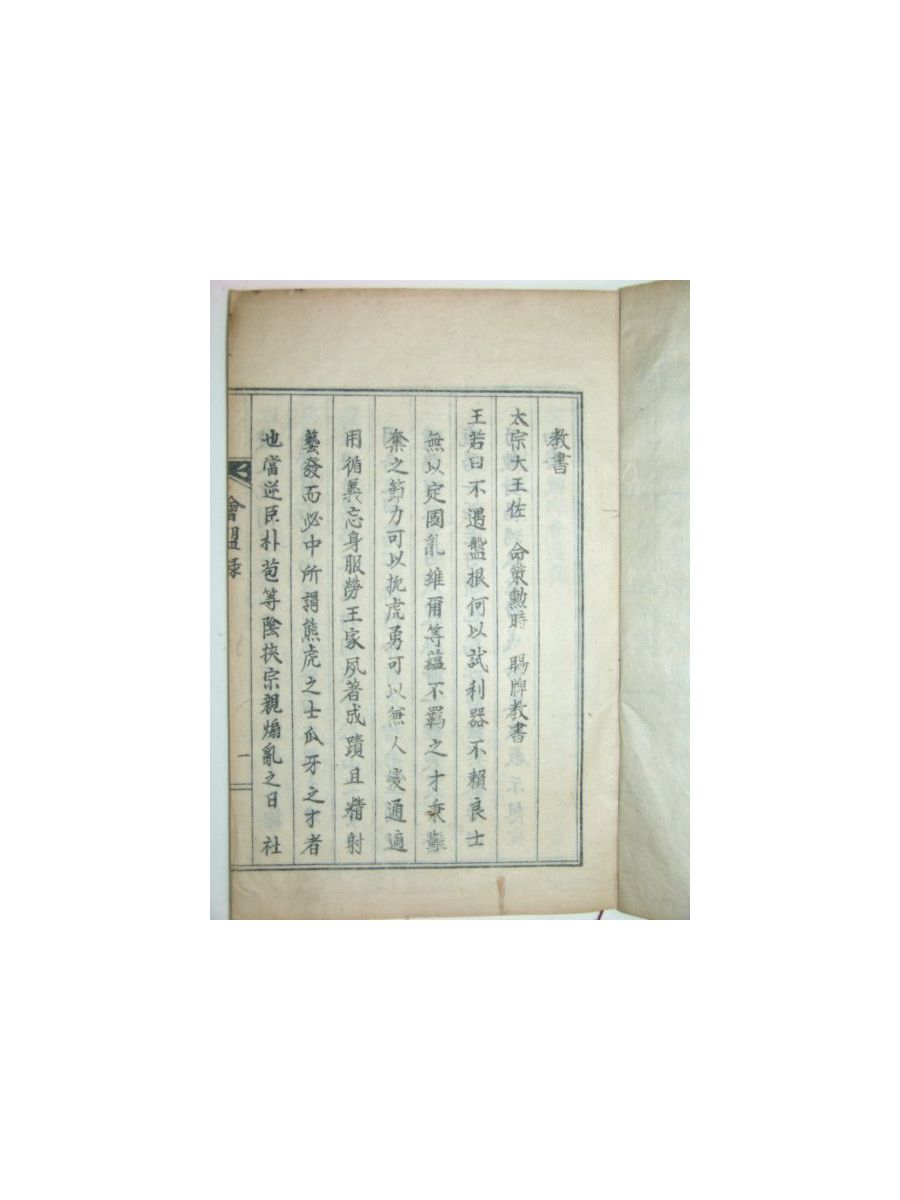 教書
太宗大王佐　命策勳時　賜牌教書
王若曰不遇盤根何以試利器不賴良士
無以定國亂維爾等蘊不羈之才秉難
奪之節力可以扼虎勇可以兼人變通適
用循義忘身服勞王家夙著成蹟且精射
藝發而必中所謂熊虎之士瓜牙之才者
也當逆臣朴苞等陰挾宗親煽亂之日　社
會盟錄
一